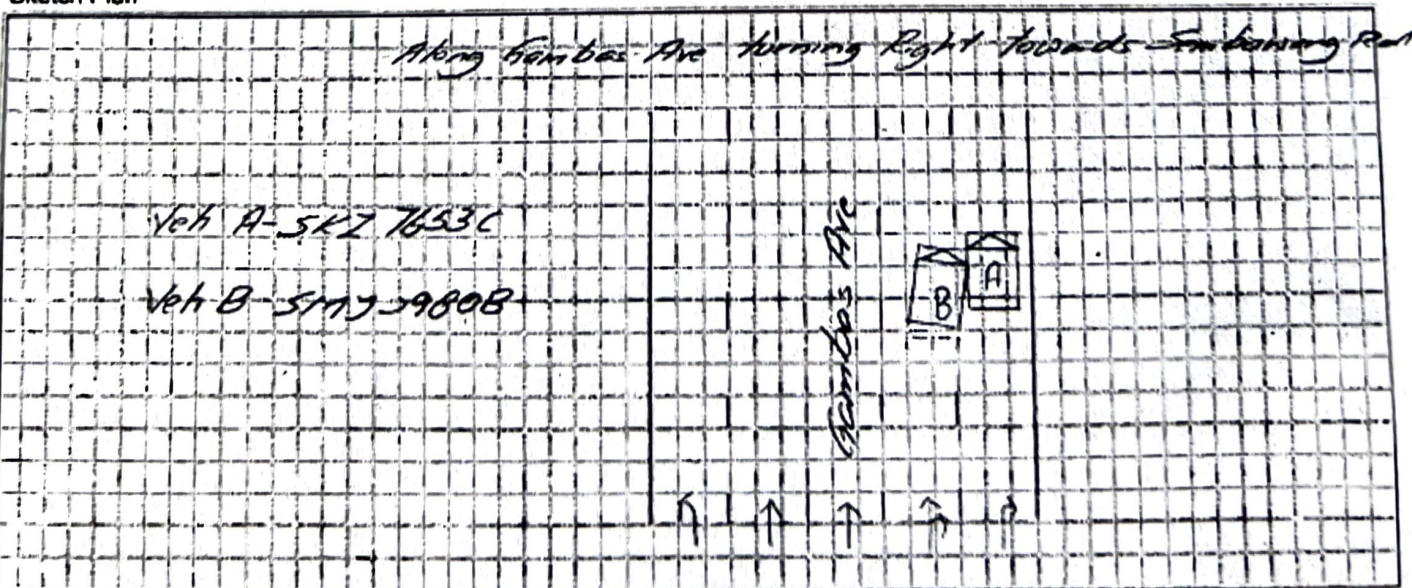 Sketch Plan
Along Gambas Ave turning Right towards Sembawang Rd
Veh A - SKZ 7653C
Veh B - SMJ 2980B
Gambas Ave
B
A